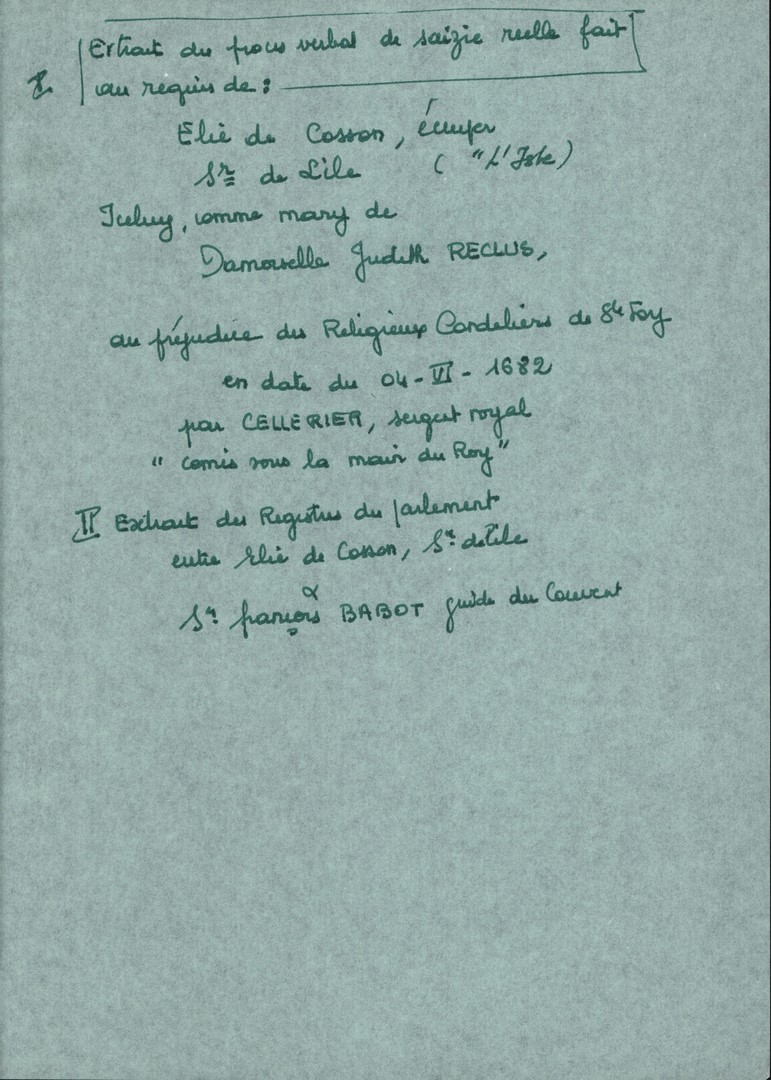 I. Extrait du procès verbal de saizie reelle fait
au requis de :
Elie de Cosson, écuyer
Sr de Lile ( "L'Isle)
Iceluy, comme mary de
Damoiselle Judith RECLUS,
au préjudice des Religieux Cordeliers de Ste Foy
en date du 04-VI-1682
par CELLERIER, sergent royal
" comis sous la main du Roy"
II Extrait des Registres du parlement
entre Elie de Cosson, Sr de Lile
&
Sr françois BABOT guide du Couvent